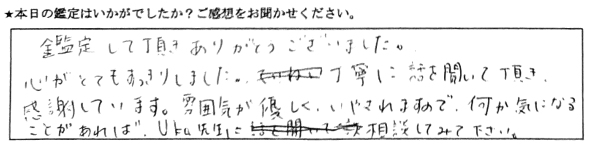 ★本日の鑑定はいかがでしたか？ご感想をお聞かせください。
鑑定して頂きありがとうございました。
心がとてもすっきりしました。丁寧に話を聞いて頂き、
感謝しています。雰囲気が優しく、いやされますので、何か気になる
ことがあれば、Uka先生に相談してみて下さい。